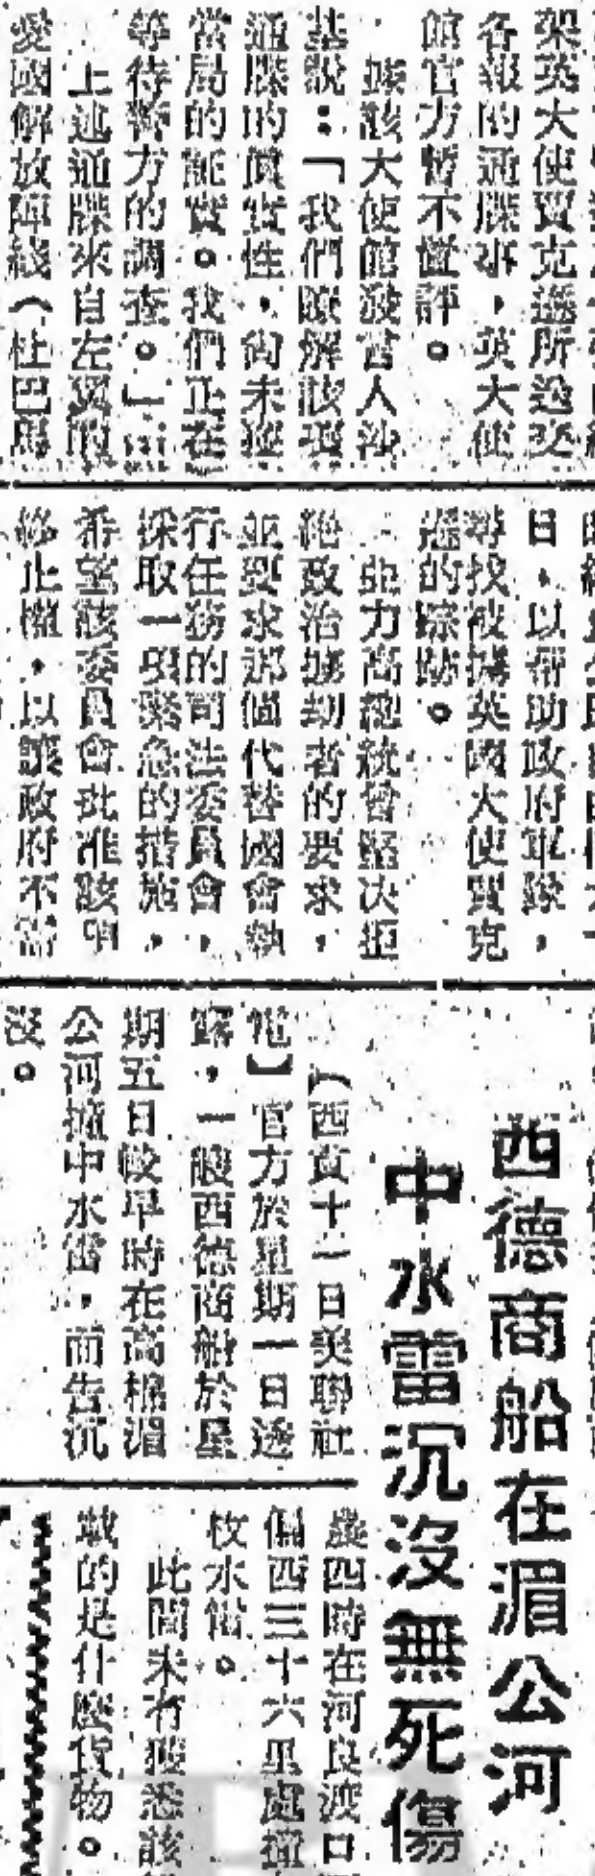 架英大使賈克遜所遞交
各報的通牒事，英大使
館官方暫不置評。
據該大使館發言人沙
基說：「我們瞭解該項
通牒的眞實性，尙未獲
當局的証實。我們正在
等待警方的調查。」
上述通牒來自左翼的
愛國解放陣綫（杜巴馬
日，以帮助政府軍隊，
尋找被擄英國大使賈克
遜的踪跡。
亞力高總統曾堅決拒
絕政治擄刧者的要求，
並要求那個代替國會執
行任務的司法委員會，
採取一項緊急的措施，
希望該委員會批准該中
終止權，以讓政府不需
西德商船在湄公河
中水雷沉沒無死傷
【西貢十一日美聯社
電】官方於星期一日透
露，一艘西德商船於星
期五日較早時在高棉湄
公河撞中水雷，而告沉
沒。
晨四時在河良渡口
偏西三十六里處撞
枚水雷。
此間未有獲悉該
載的是什麼貨物。